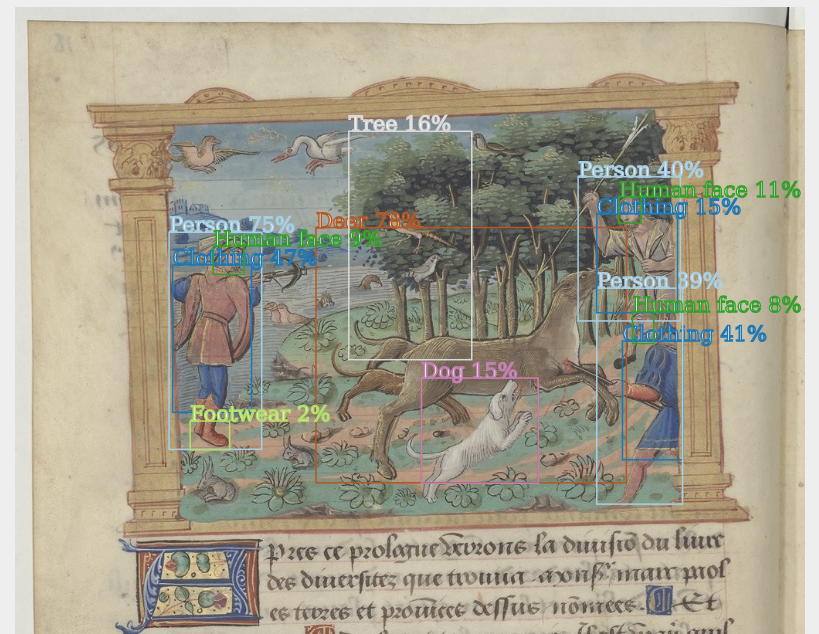 Tree 16%
Person 40%
Human face 11%
Clothing 15%
Person 75%
Deer 78%
Human face 9%
Clothing 47%
Person 39%
Human face 8%
Clothing 41%
Dog 15%
Footwear 2%
A Pres ce prologue deuons la diuisio du liure
des diuersitez que trouua
es terres et prouices dessus nomees. Et